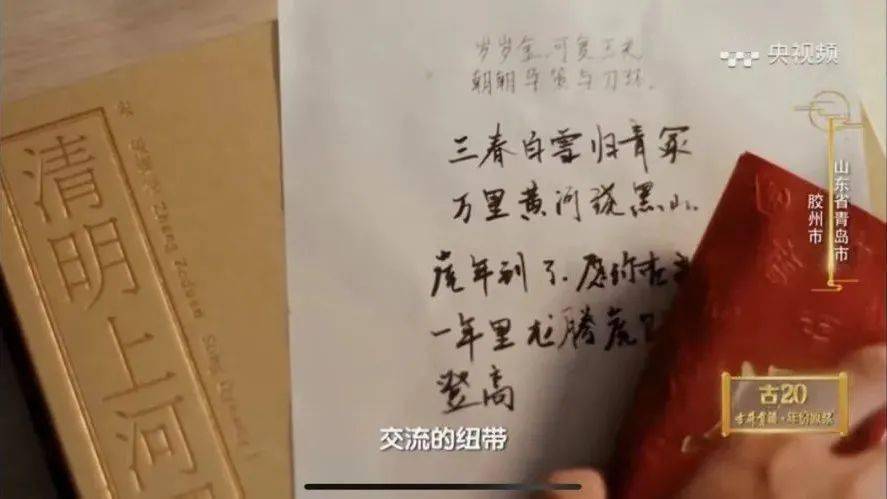 央视频
山东省青岛市
胶州市
清明上河
Zhang Zeduan
岁岁金河复玉关
朝朝马策与刀环.
三春白雪归青冢
万里黄河绕黑山
虎年到了.愿你在
一年里龙腾虎
登高
古20
古井贡酒·年份原浆
交流的纽带